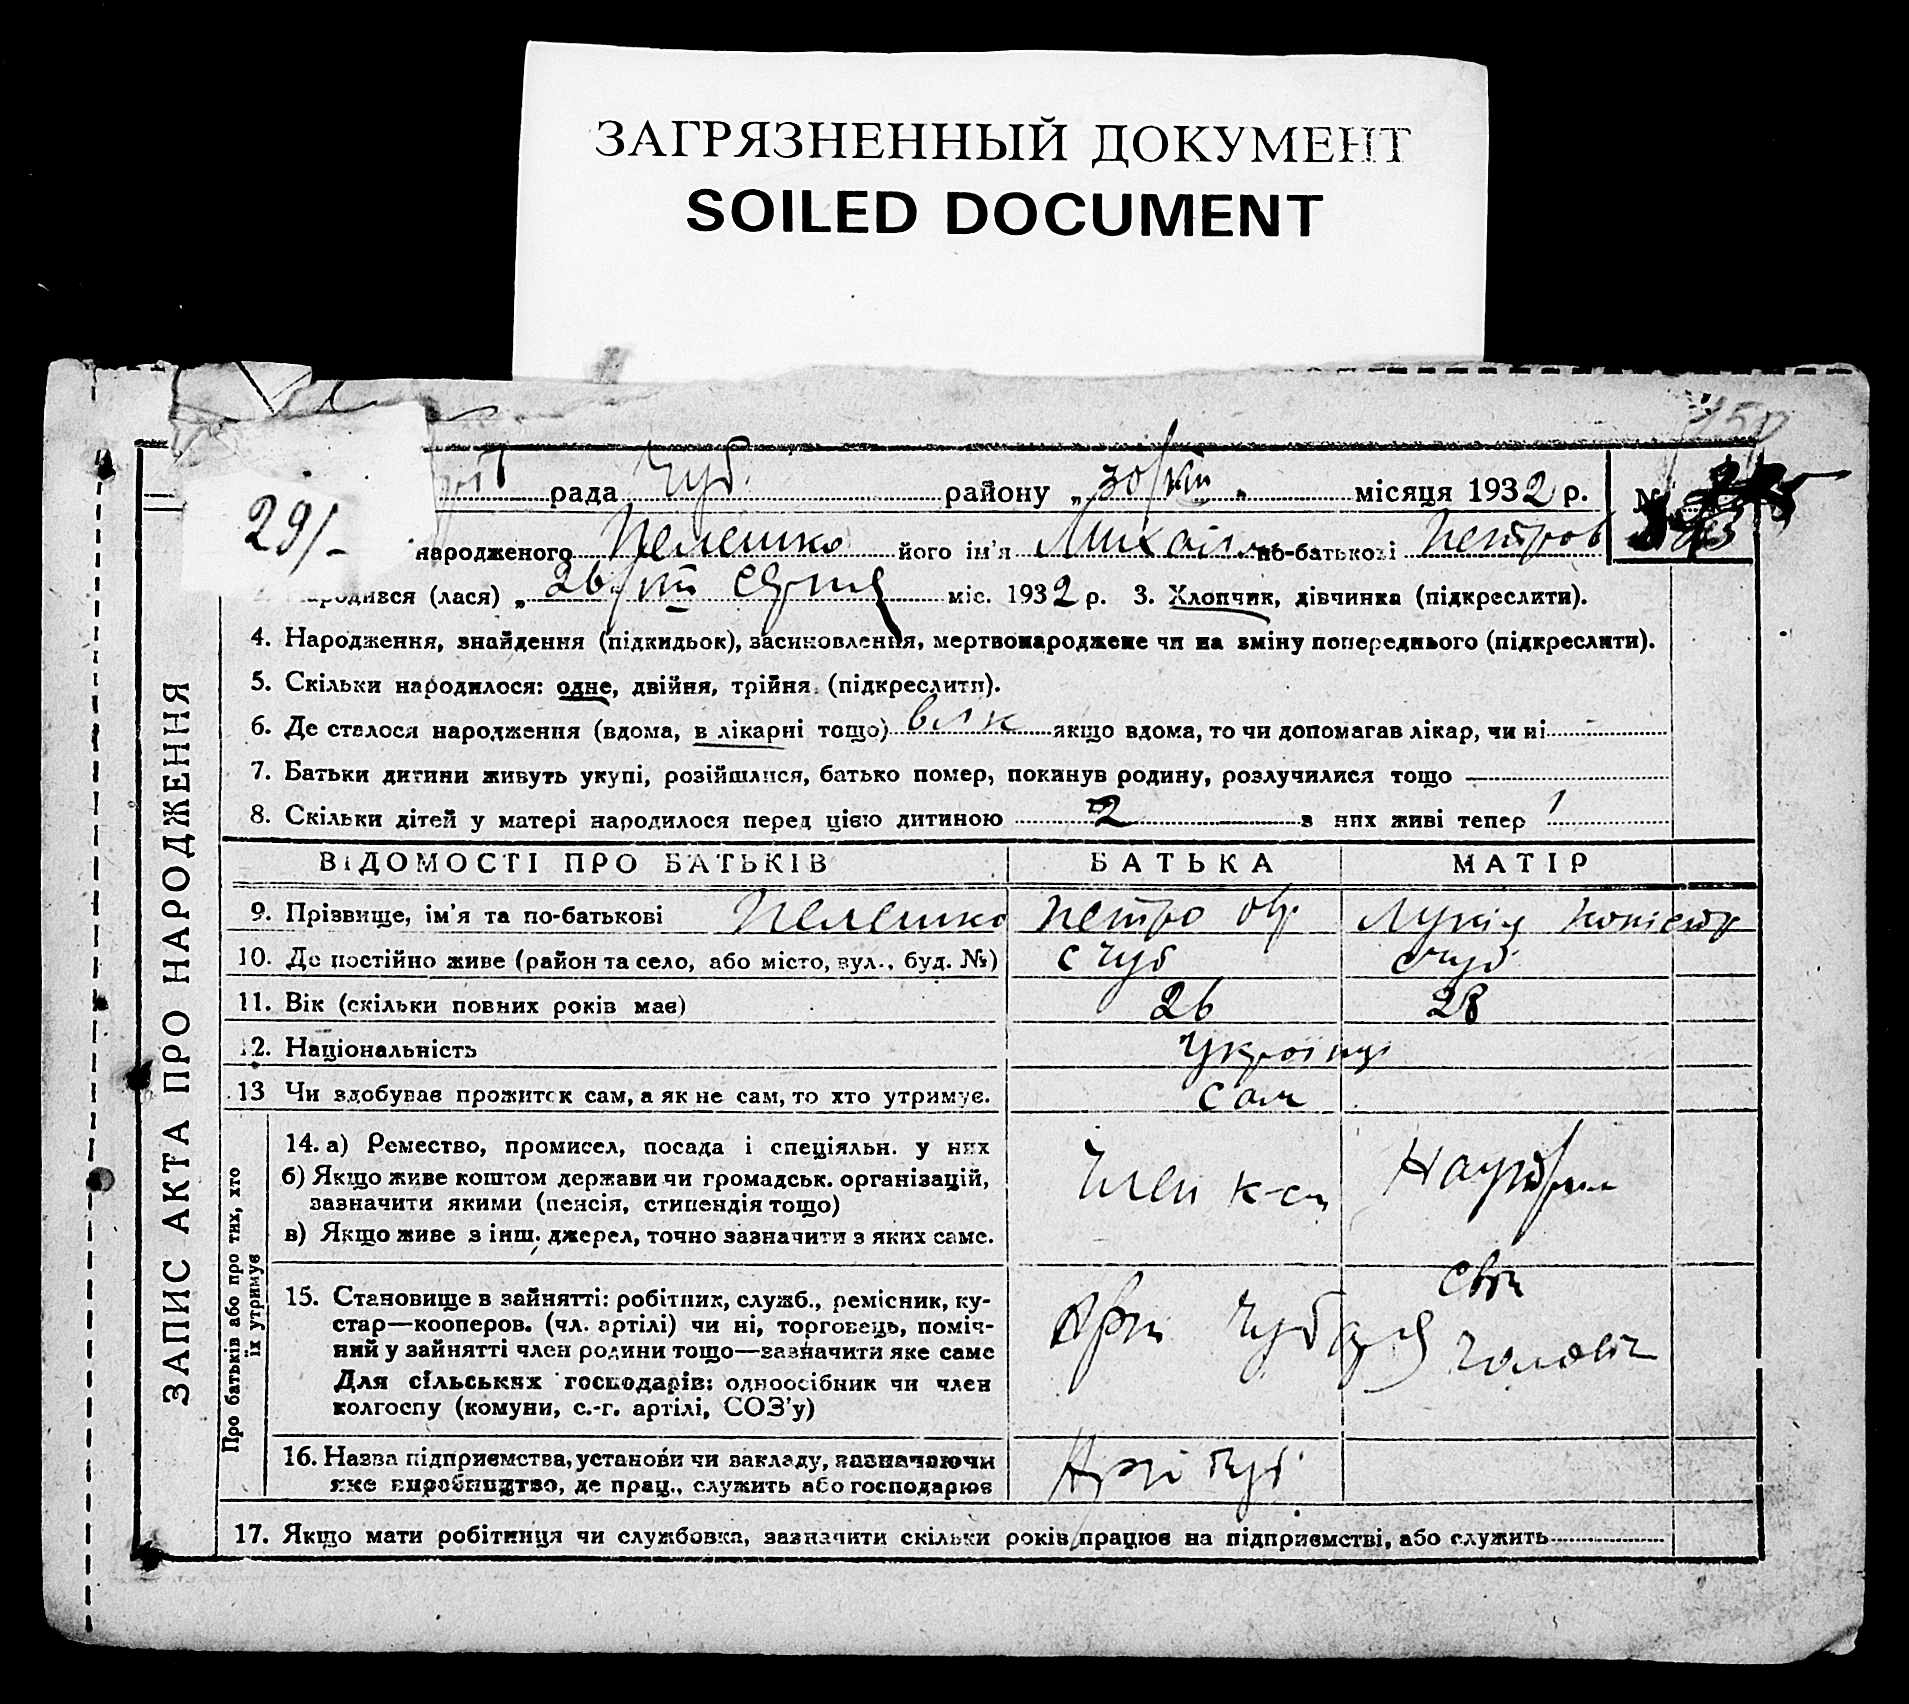 ЗАГРЯЗНЕННЫЙ ДОКУМЕНТ
SOILED DOCUMENT
рада Чуб. району „30/VIII" місяця 1932 р. №
29/-
народженого Пелешко його ім'я Михайло по-батькові Петров
народився (лася) „26/VIII серпня міс. 1932 р. 3. Хлопчик, дівчинка (підкреслити).
4. Народження, знайдення (підкидьок), засиновлення, мертвонароджене чи на зміну попереднього (підкреслити).
5. Скільки народилося: одне, двійня, трійня (підкреслити).
6. Де сталося народження (вдома, в лікарні тощо) в лік якщо вдома, то чи допомагав лікар, чи ні -
7. Батьки дитини живуть укупі, розійшлися, батько помер, покинув родину, розлучилися тощо —
8. Скільки дітей у матері народилося перед цією дитиною 2 з них живі тепер 1
ЗАПИС АКТА ПРО НАРОДЖЕННЯ
ВІДОМОСТІ ПРО БАТЬКІВ БАТЬКА МАТІР
9. Прізвище, ім'я та по-батькові Пелешко Петро Лукія
10. Де постійно живе (район та село, або місто, вул., буд. №) с Чуб с Чуб
11. Вік (скільки повних років має) 26 28
12. Національність Українці
13 Чи здобуває прожиток сам, а як не сам, то хто утримує. сам
Про батьків або про тих, хто
їх утримує
14. а) Ремество, промисел, посада і спеціяльн. у них
б) Якщо живе коштом держави чи громадськ. організацій,
зазначити якими (пенсія, стипендія тощо)
в) Якщо живе з інш. джерел, точно зазначити з яких саме.
Член к-сп На утрим
15. Становище в зайнятті: робітник, служб., ремісник, ку-
стар—кооперов. (чл. артілі) чи ні, торговець, поміч-
ний у зайнятті член родини тощо—зазначити яке саме
Для сільських господарів: одноосібник чи член
колгоспу (комуни, с.-г. артілі, СОЗ'у)
16. Назва підприємства, установи чи закладу, зазначаючи
яке виробництво, де прац., служить або господарює
17. Якщо мати робітниця чи службовка, зазначити скільки років працює на підприємстві, або служить